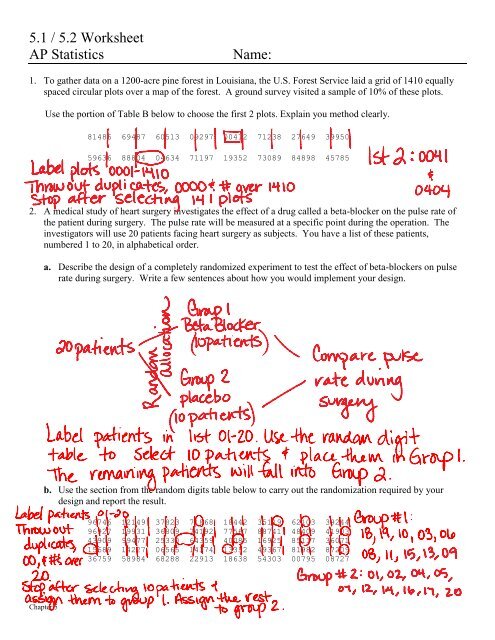 5.1 / 5.2 Worksheet
AP Statistics Name:
1. To gather data on a 1200-acre pine forest in Louisiana, the U.S. Forest Service laid a grid of 1410 equally
spaced circular plots over a map of the forest. A ground survey visited a sample of 10% of these plots.
Use the portion of Table B below to choose the first 2 plots. Explain you method clearly.
81486 69487 60513 09297 00412 71238 27649 39950
59636 88804 04634 71197 19352 73089 84898 45785
1st 2: 0041
&
0404
Label plots 0001-1410
Throw out duplicates, 0000 & # over 1410
Stop after selecting 141 plots
2. A medical study of heart surgery investigates the effect of a drug called a beta-blocker on the pulse rate of
the patient during surgery. The pulse rate will be measured at a specific point during the operation. The
investigators will use 20 patients facing heart surgery as subjects. You have a list of these patients,
numbered 1 to 20, in alphabetical order.
a. Describe the design of a completely randomized experiment to test the effect of beta-blockers on pulse
rate during surgery. Write a few sentences about how you would implement your design.
20 patients
Random allocation
Group 1
Beta Blocker
(10 patients)
Group 2
placebo
(10 patients)
Compare pulse
rate during
surgery
Label patients in list 01-20. Use the random digit
table to select 10 patients & place them in Group 1.
The remaining patients will fall into Group 2.
b. Use the section from the random digits table below to carry out the randomization required by your
design and report the result.
Label patients 01-20
Throw out
duplicates,
00, & #s over
20.
Stop after selecting 10 patients &
assign them to group 1. Assign the rest
to group 2.
96746 12149 37823 18442
96927 19931 36809
99477
14227 06565
36759 58984 68288 22913 18638 54303 00795 08727
Group #1:
18, 19, 10, 03, 06
08, 11, 15, 13, 09
Group #2: 01, 02, 04, 05,
07, 12, 14, 16, 17, 20
Chapter